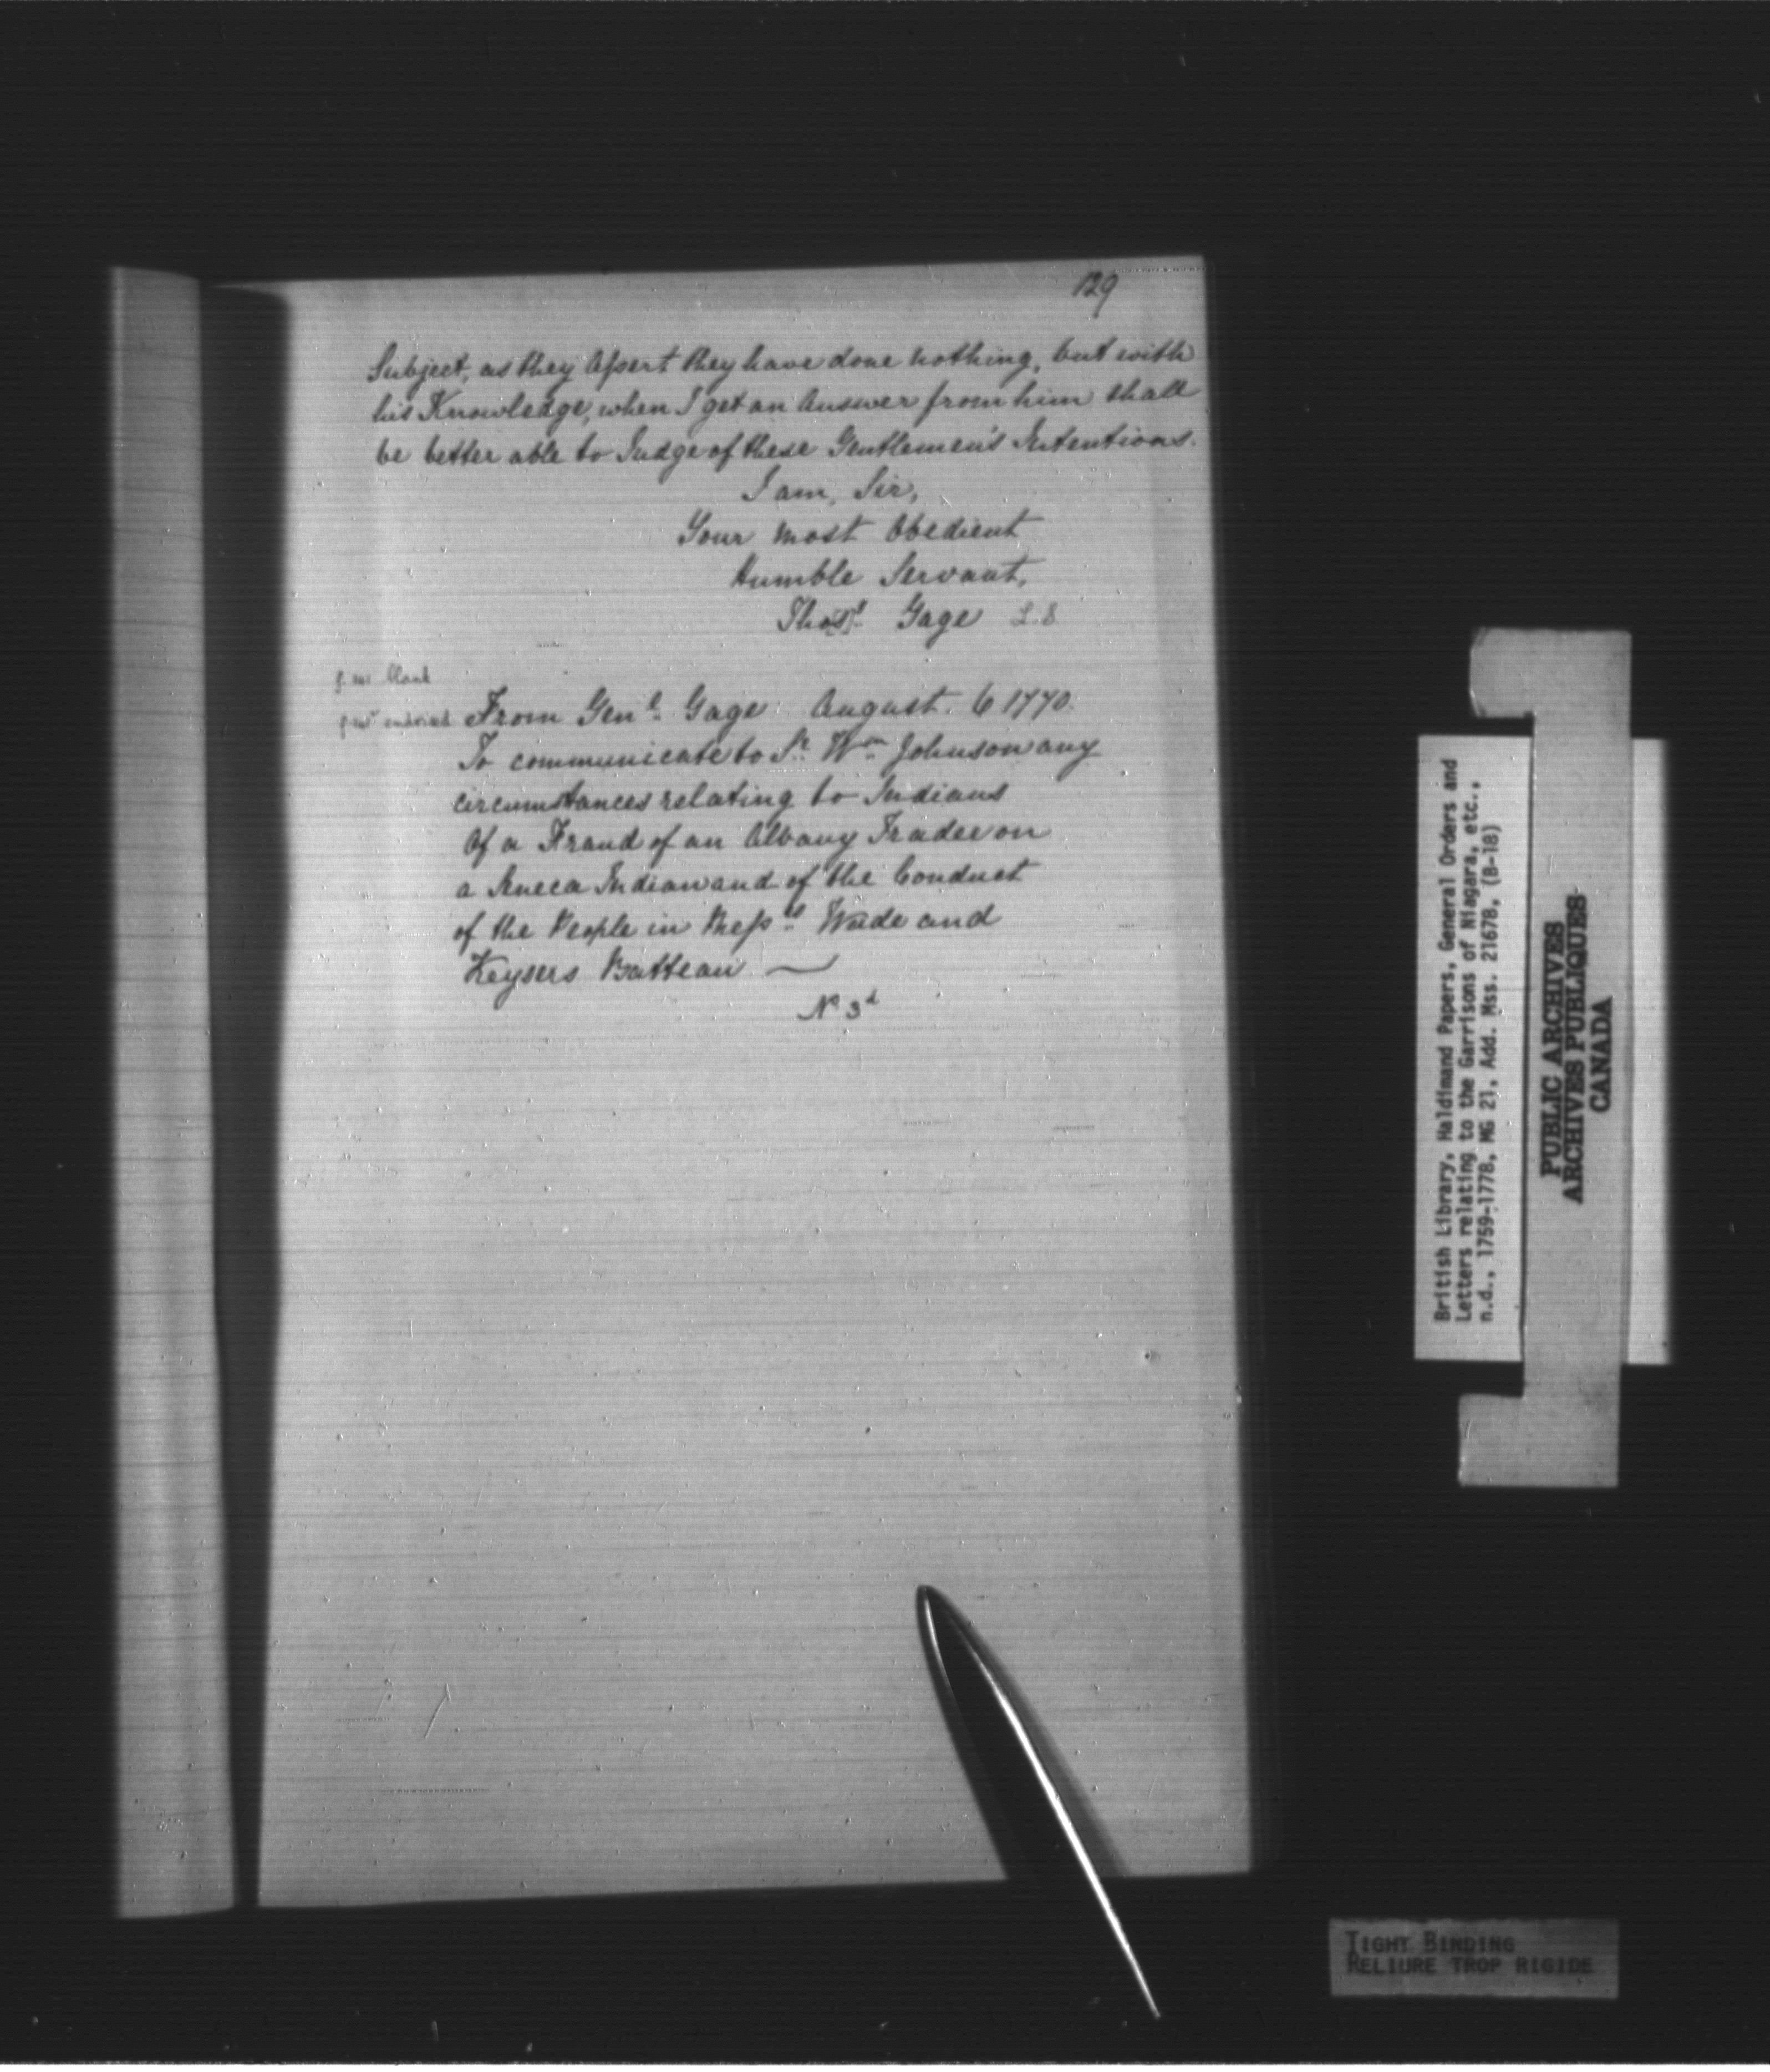 129
Subject, as they Assert they have done nothing, but with
his Knowledge, when I get an Answer from him shall
be better able to Judge of these Gentlemen's Intentions.
I am, Sir,
Your most Obedient
Humble Servant,
Thos. Gage L.S
blank
endorsed From Genl. Gage August. 6 1770.
To communicate to Sr. Wm Johnson any
circumstances relating to Indians
Of a Fraud of an Albany Trader on
a Seneca Indian and of the Conduct
of the People in Messrs. Wade and
Keysers Batteau —
No 3d
British Library, Haldimand Papers, General Orders and
Letters relating to the Garrisons of Niagara, etc.,
n.d., 1759-1778, MG 21, Add. Mss. 21678, (B-18)
PUBLIC ARCHIVES
ARCHIVES PUBLIQUES
CANADA
TIGHT BINDING
RELIURE TROP RIGIDE